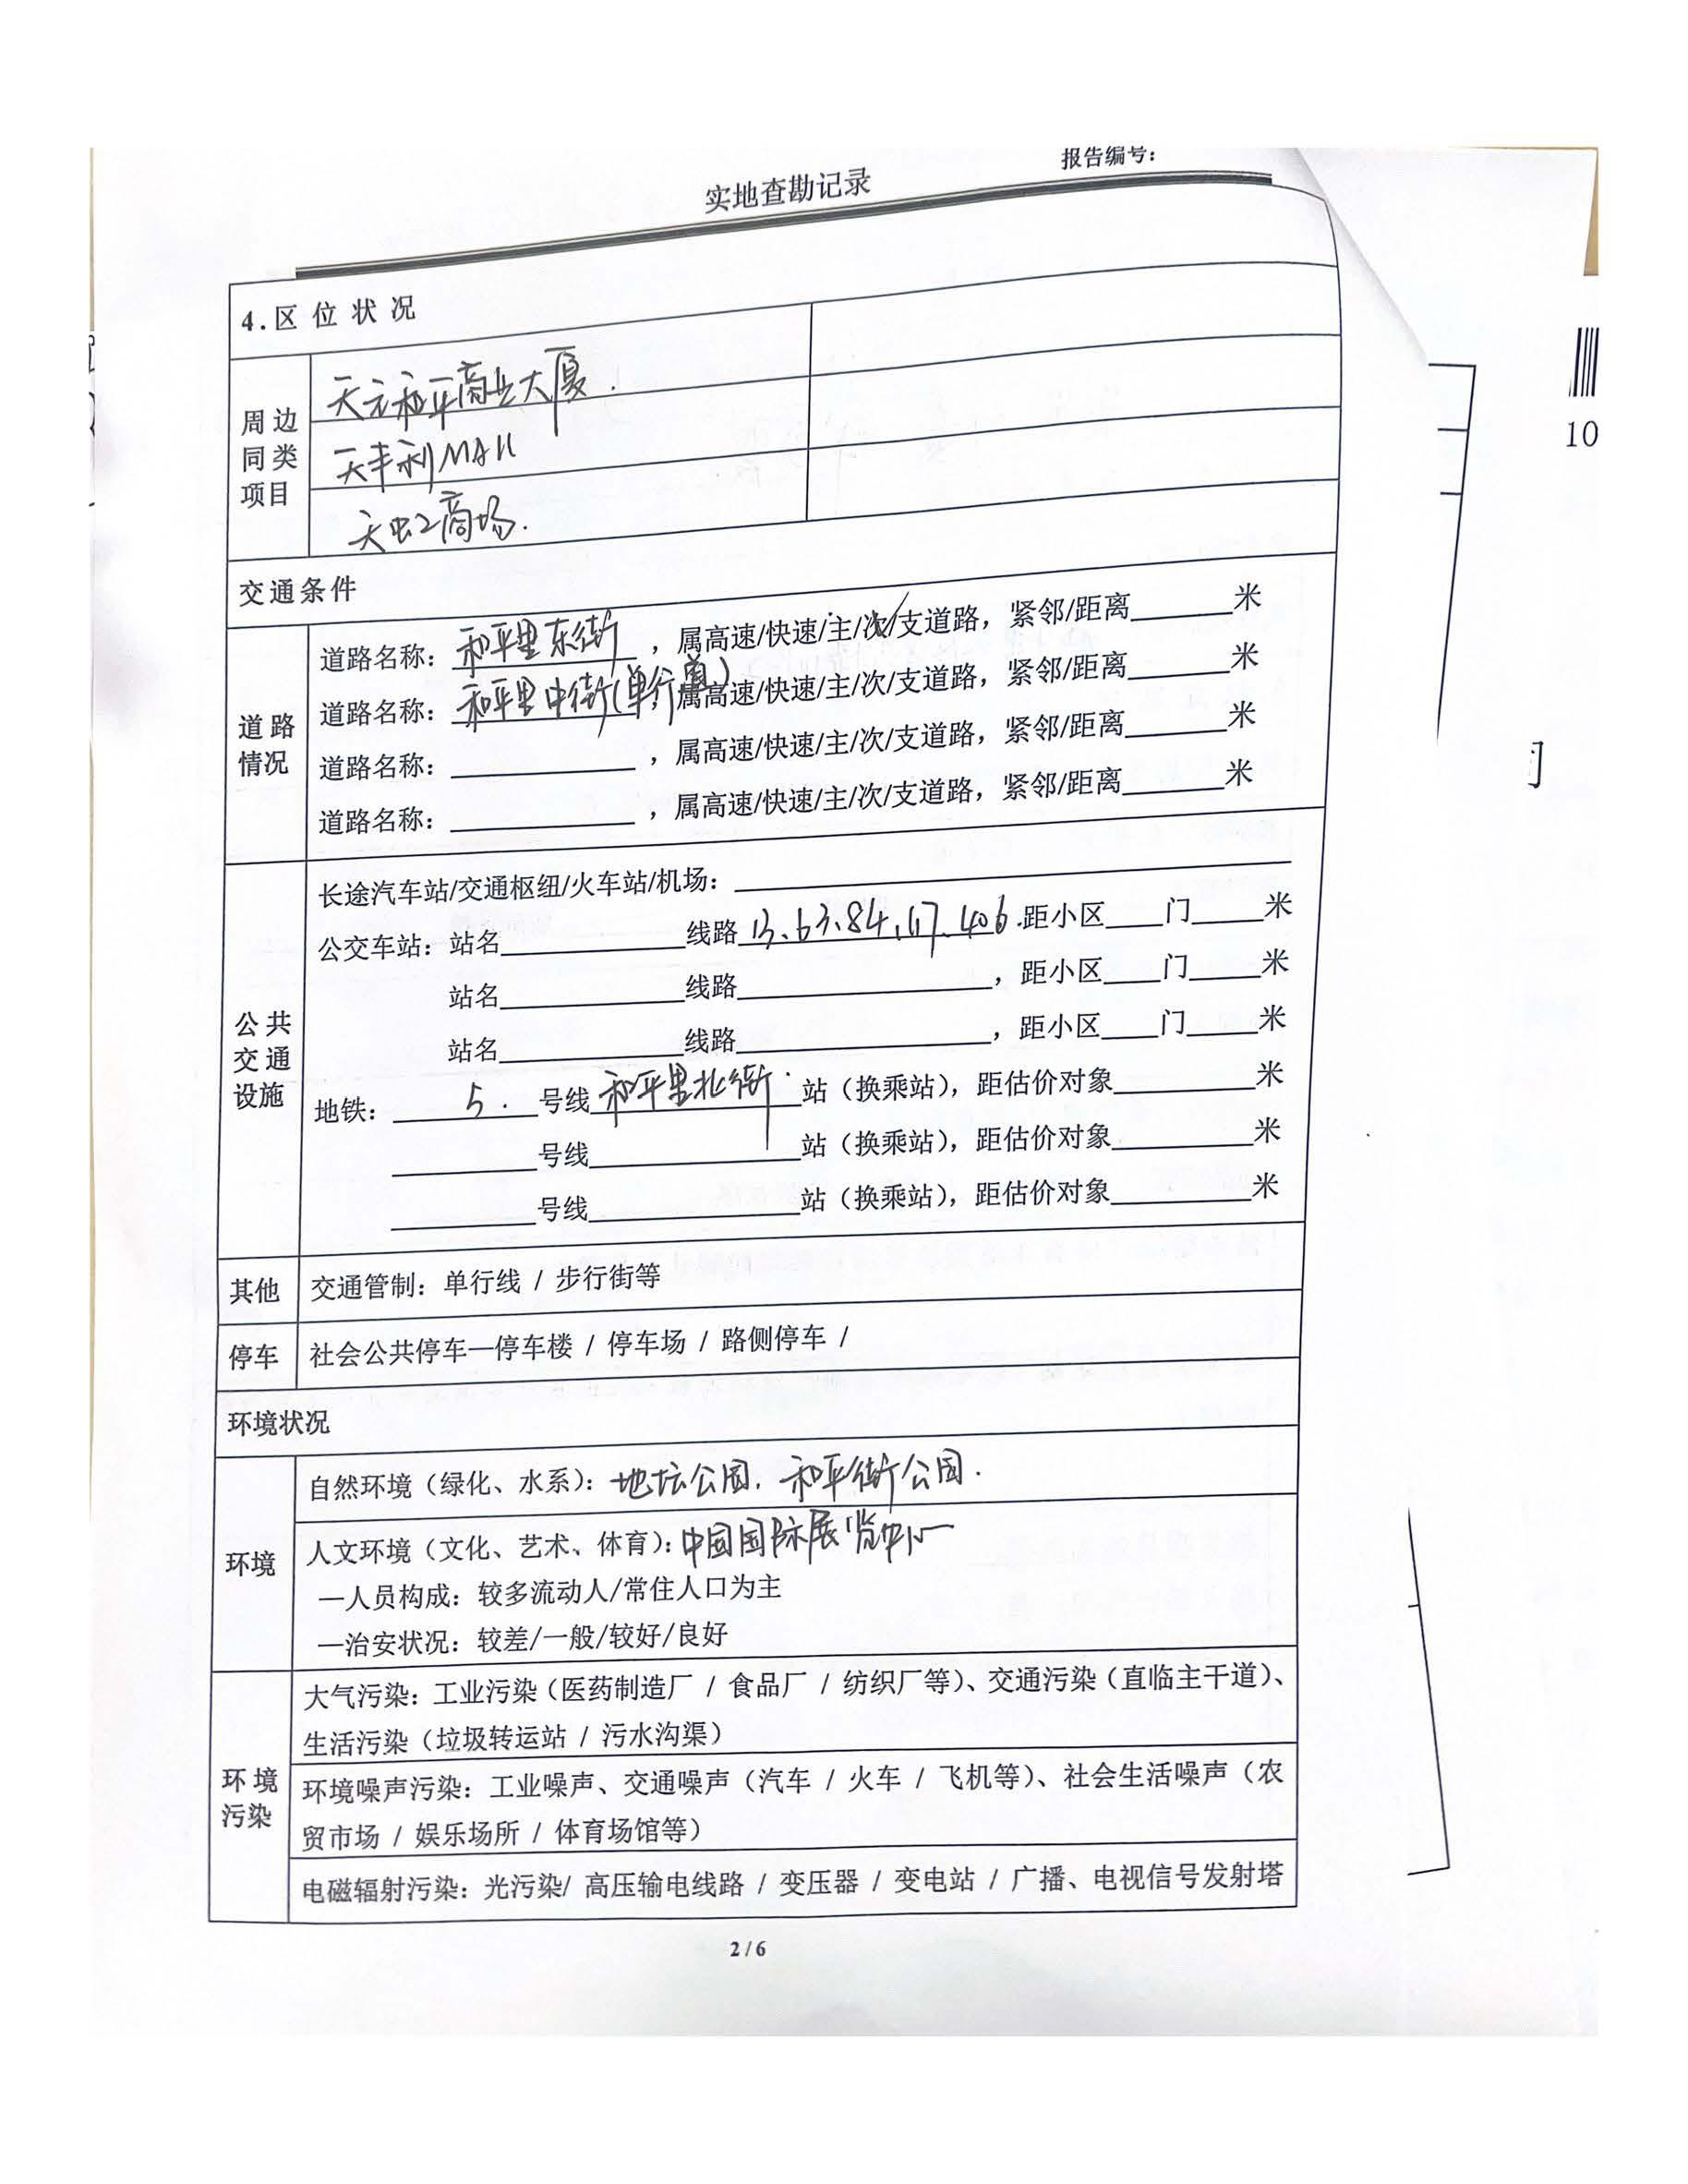 报告编号：
实地查勘记录
4.区 位 状 况
周边同类项目
天元和平商业大厦.
天丰利MAll
天虹商场.
交通条件
道路情况
道路名称：和平里东街，属高速/快速/主/次/支道路，紧邻/距离______米
道路名称：和平里中街(单行道)，属高速/快速/主/次/支道路，紧邻/距离______米
道路名称：____________，属高速/快速/主/次/支道路，紧邻/距离______米
道路名称：____________，属高速/快速/主/次/支道路，紧邻/距离______米
公共交通设施
长途汽车站/交通枢纽/火车站/机场：____________
公交车站：站名____________线路13、63、84、117、406.距小区____门____米
站名____________线路____________，距小区____门____米
站名____________线路____________，距小区____门____米
地铁：5.号线和平里北街站（换乘站），距估价对象______米
______号线____________站（换乘站），距估价对象______米
______号线____________站（换乘站），距估价对象______米
其他 交通管制：单行线 / 步行街等
停车 社会公共停车—停车楼 / 停车场 / 路侧停车 /
环境状况
环境
自然环境（绿化、水系）：地坛公园. 和平街公园.
人文环境（文化、艺术、体育）：中国国际展览中心
—人员构成：较多流动人/常住人口为主
—治安状况：较差/一般/较好/良好
环境污染
大气污染：工业污染（医药制造厂 / 食品厂 / 纺织厂等）、交通污染（直临主干道）、
生活污染（垃圾转运站 / 污水沟渠）
环境噪声污染：工业噪声、交通噪声（汽车 / 火车 / 飞机等）、社会生活噪声（农
贸市场 / 娱乐场所 / 体育场馆等）
电磁辐射污染：光污染/ 高压输电线路 / 变压器 / 变电站 / 广播、电视信号发射塔
2 / 6
10